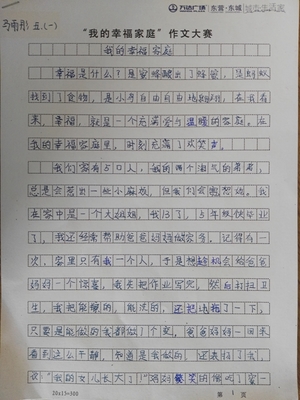 万达广场 东营·东城
马雨彤 五(一)
“我的幸福家庭”作文大赛
我的幸福家庭
幸福是什么？是蜜蜂酿出了蜂蜜，是蚂蚁
找到了食物，是小鸟自由自在地翱翔，在我看
来，幸福，就是一个充满爱与温暖的家庭。在
我的幸福家庭里，时刻充满了欢笑声。
我们家有5口人，我的两个淘气的弟弟，
总是会惹出一些小麻烦，但我们会
在家中是一个大姐姐，我13了，5年级快毕业
了，我还经常帮助爸爸妈妈做家务，记得有一
次，家里只有我一个人，于是想趁机会给爸爸
妈妈一个惊喜，我先把作业写完，然后打扫卫
生，我把能擦的，能洗的，还把地拖了一下，
只要是能做的我都做了个变，爸爸妈妈一回来
看到这么干净，知道是我做的，还表扬了我，
说“我的女儿长大了！”妈妈
20×15=300
第1页